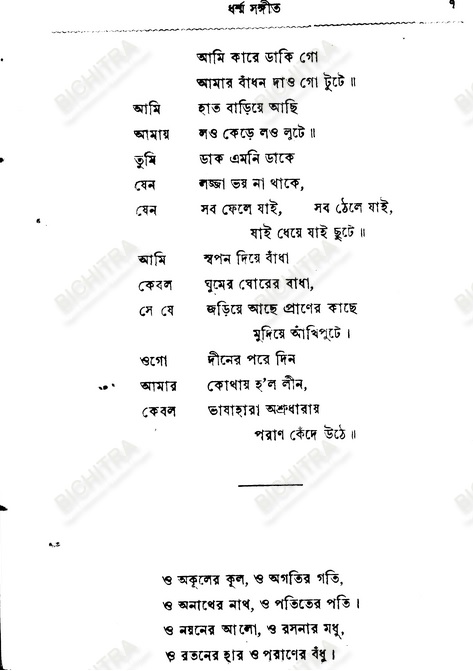 ধর্ম্ম সঙ্গীত ৭
আমি কারে ডাকি গো
আমার বাঁধন দাও গো টুটে ॥
আমি হাত বাড়িয়ে আছি
আমায় লও কেড়ে লও লুটে ॥
তুমি ডাক এমনি ডাকে
যেন লজ্জা ভয় না থাকে,
যেন সব ফেলে যাই, সব ঠেলে যাই,
যাই ধেয়ে যাই ছুটে ॥
আমি স্বপন দিয়ে বাঁধা
কেবল ঘুমের ঘোরের বাধা,
সে যে জড়িয়ে আছে প্রাণের কাছে
মুদিয়ে আঁখিপুটে ।
ওগো দীনের পরে দিন
আমার কোথায় হ'ল লীন,
কেবল ভাষাহারা অশ্রুধারায়
পরাণ কেঁদে উঠে ॥
ও অকূলের কূল, ও অগতির গতি,
ও অনাথের নাথ, ও পতিতের পতি ।
ও নয়নের আলো, ও রসনার মধু,
ও রতনের হার ও পরাণের বঁধু ।
BICHITRA
BICHITRA
BICHITRA
BICHITRA
BICHITRA
BICHITRA
BICHITRA
BICHITRA
BICHITRA